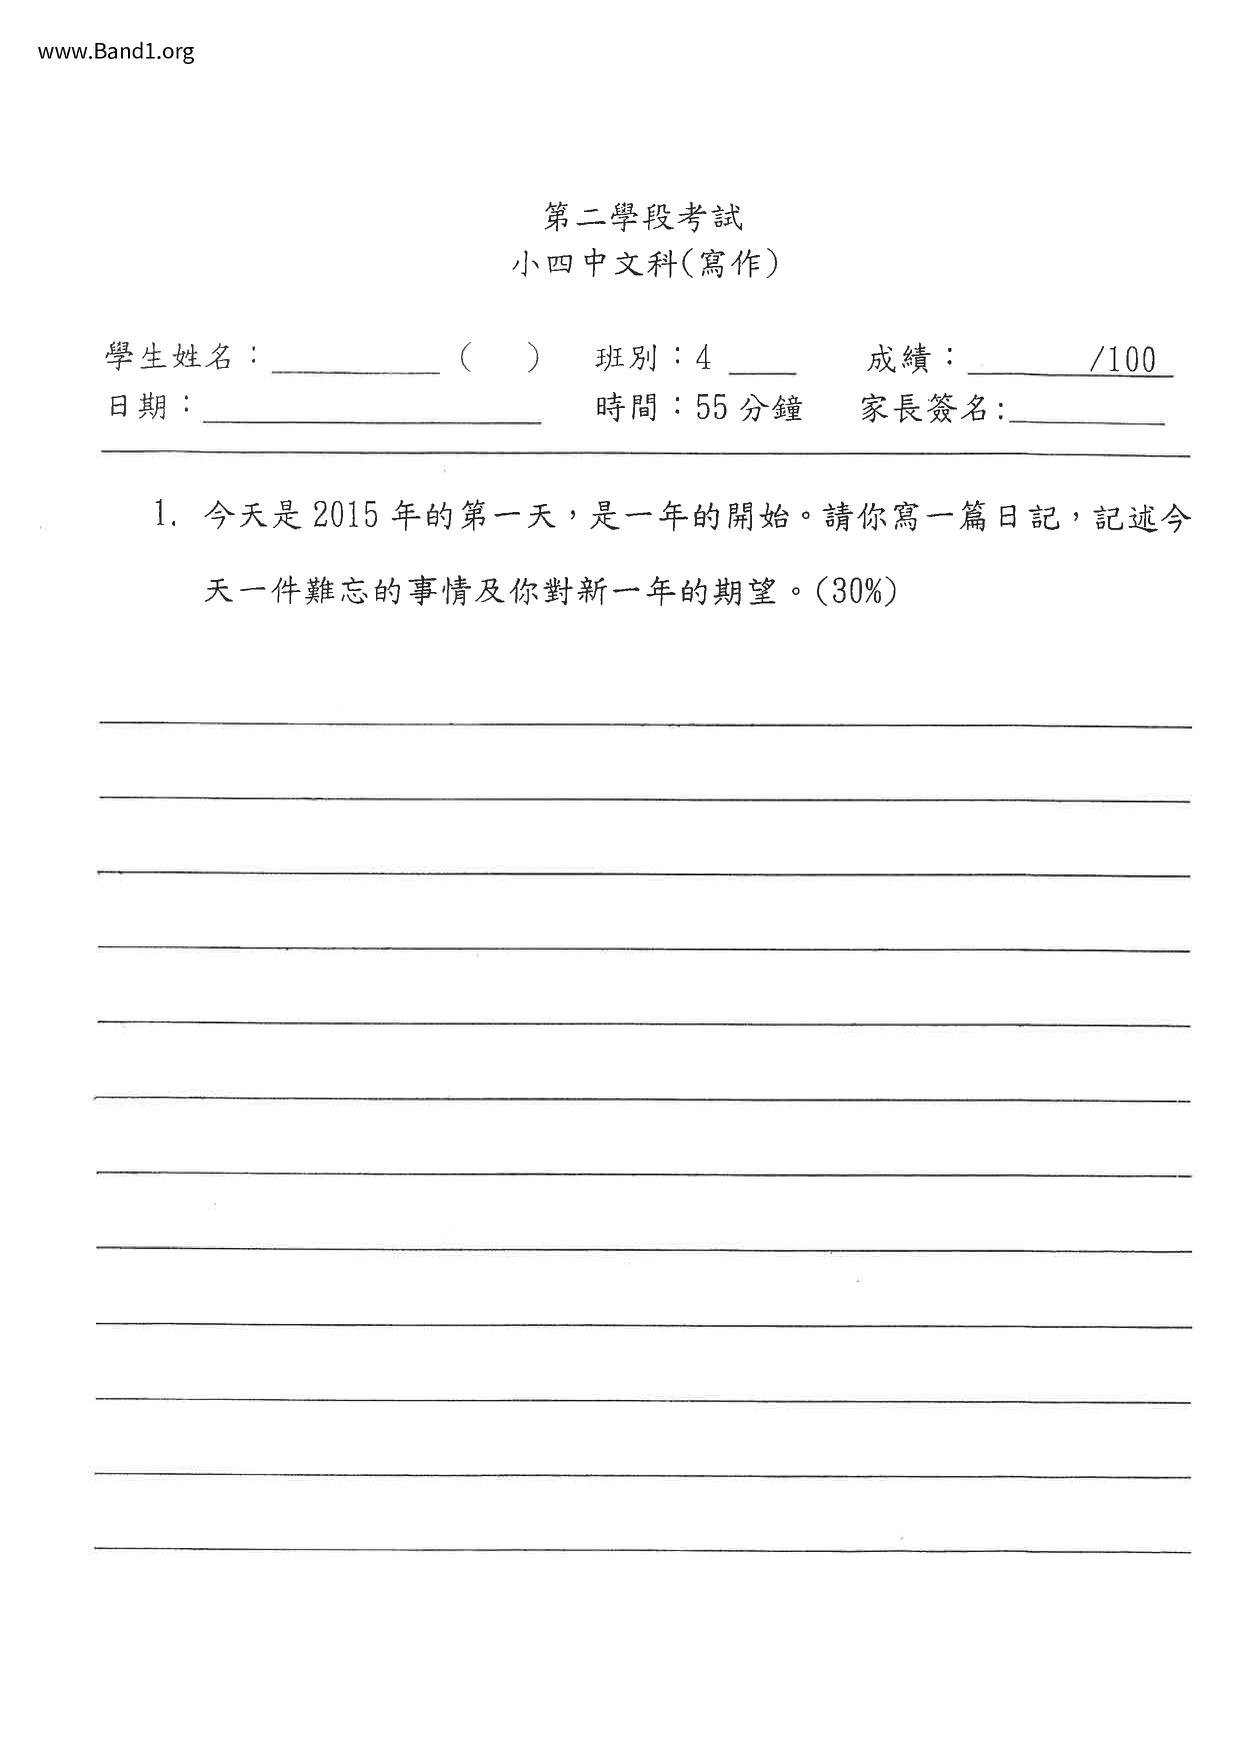 www.Band1.org
第二學段考試
小四中文科(寫作)
學生姓名：__________ (　) 班別：4 ____ 成績：________/100
日期：____________________ 時間：55 分鐘 家長簽名:__________
1. 今天是 2015 年的第一天，是一年的開始。請你寫一篇日記，記述今
天一件難忘的事情及你對新一年的期望。(30%)